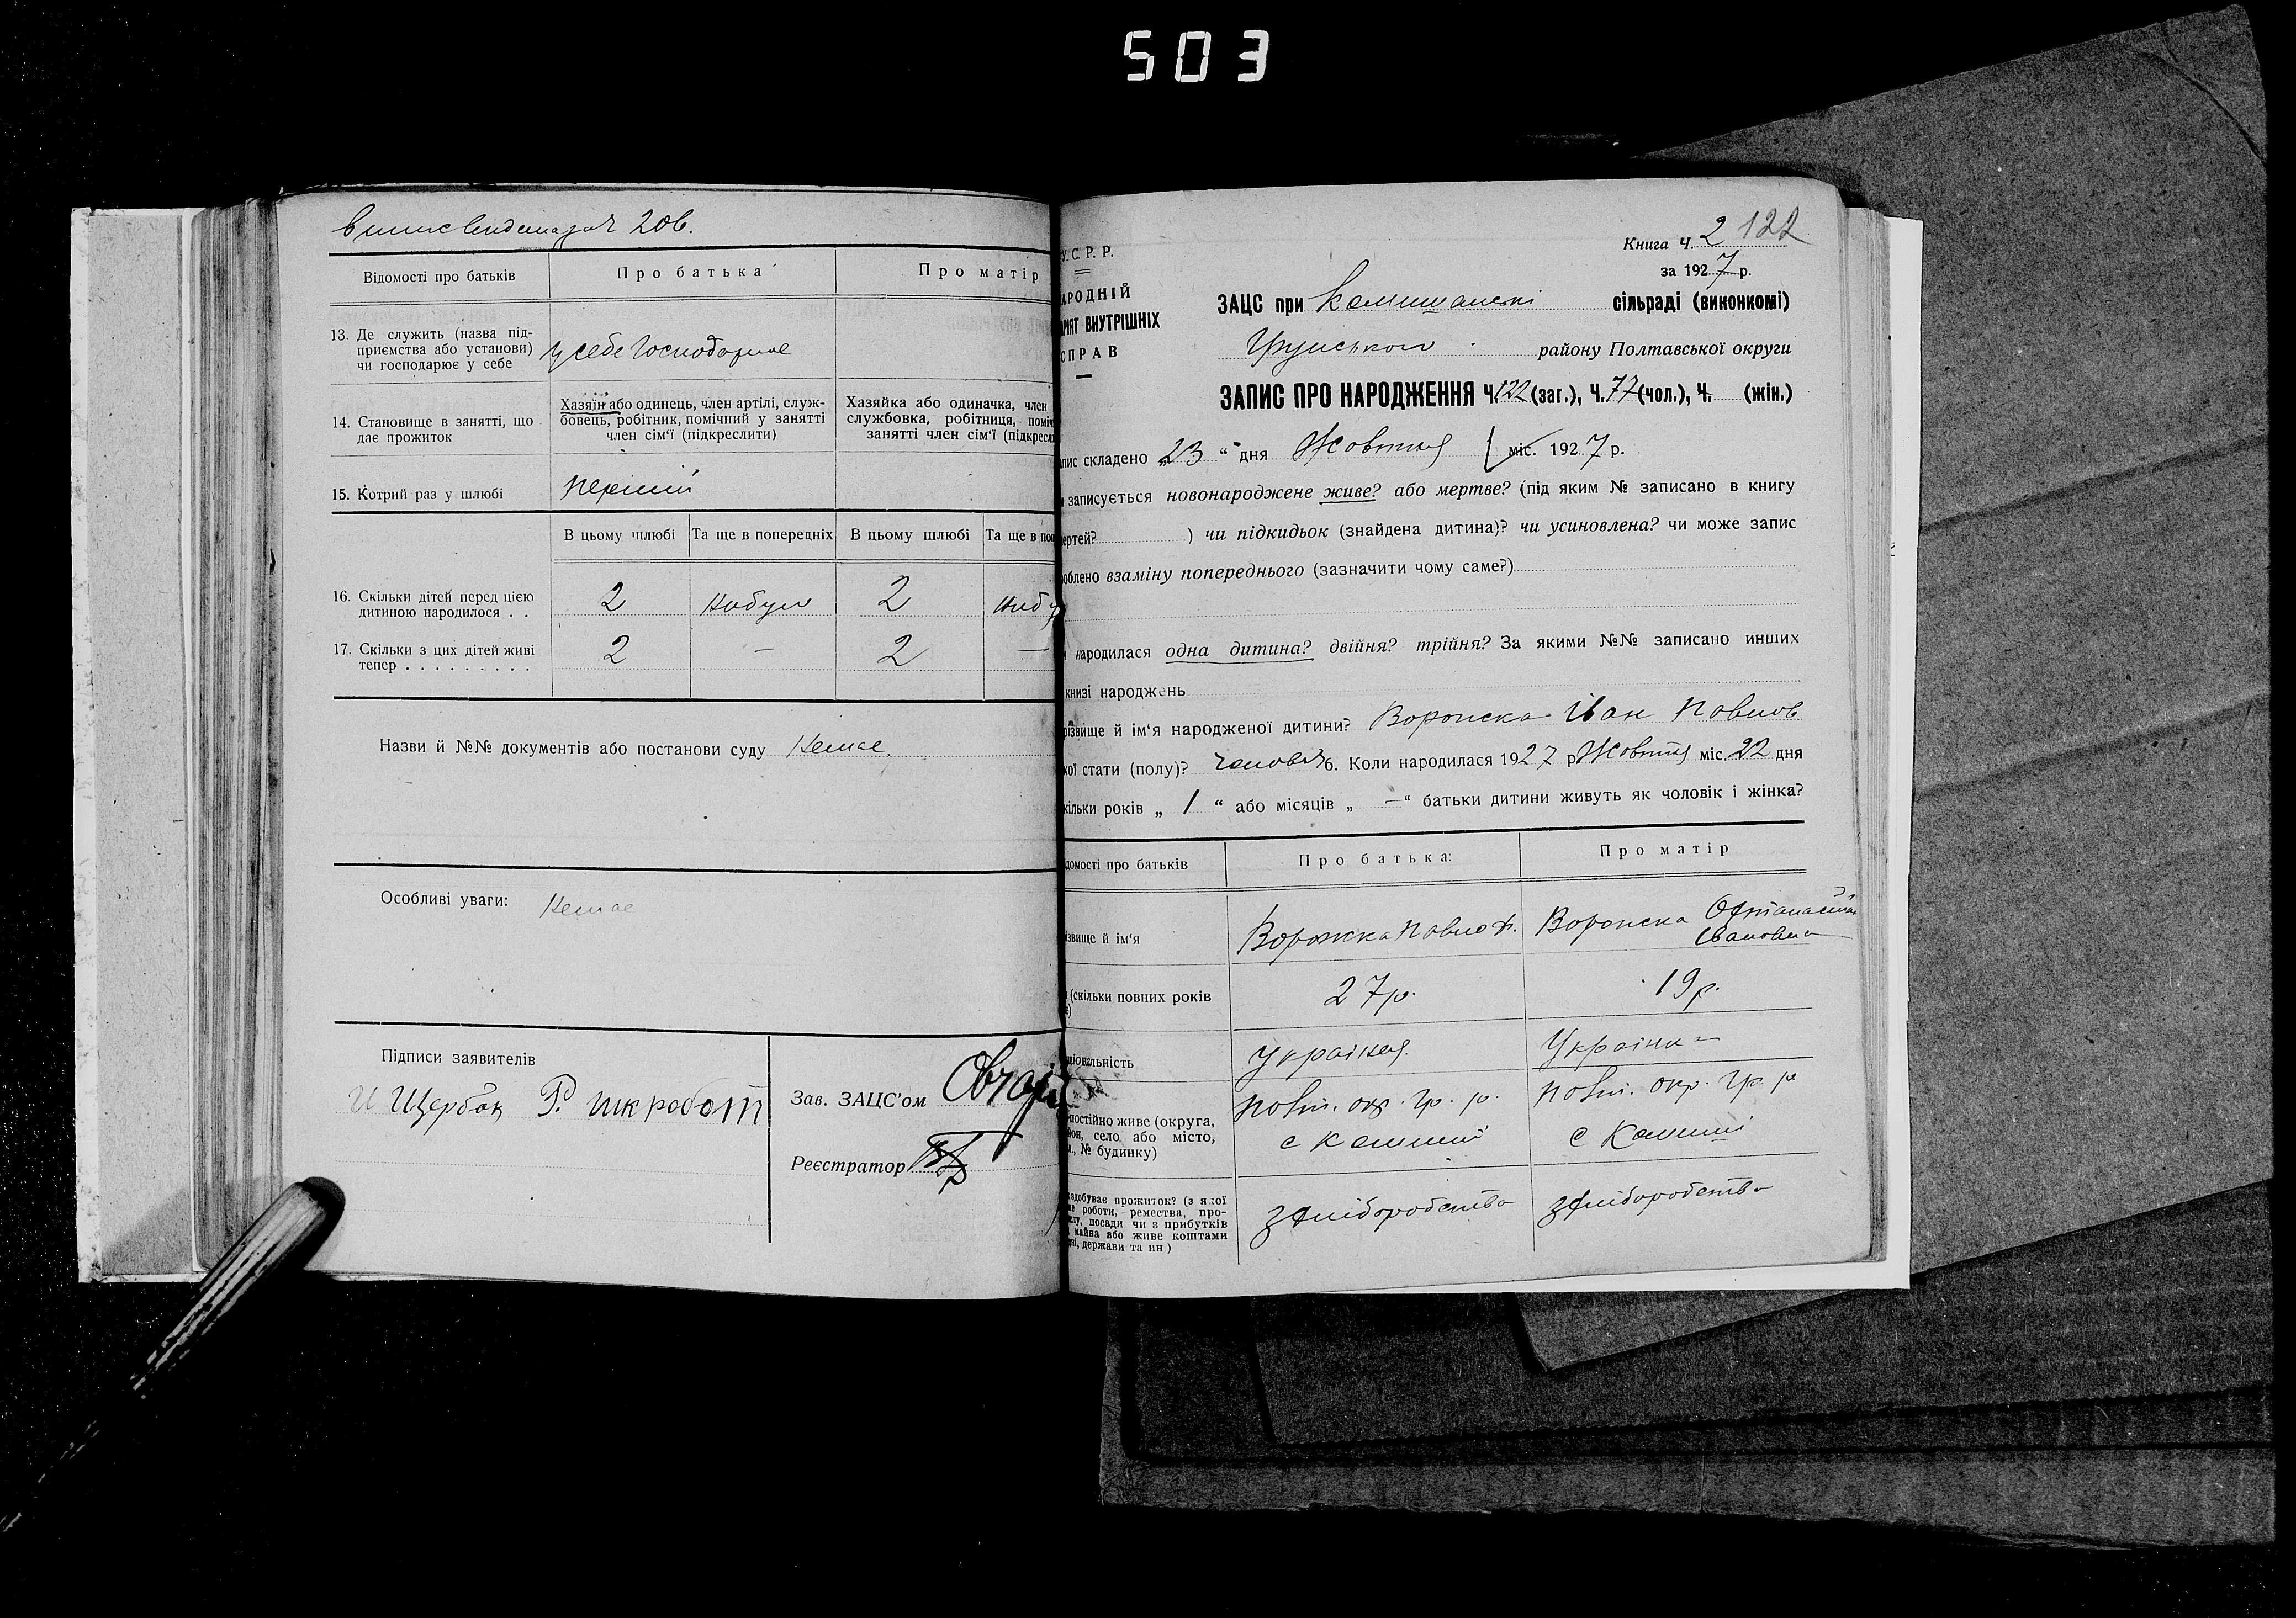 503
20 в.
Відомості про батьків
Про батька
Про матір
13. Де служить (назва під-
приємства або установи)
чи господарює у себе
у себе Господарює
14. Становище в занятті, що
дає прожиток
Хазяїн або одинець, член артілі, служ-
бовець, робітник, помічний у занятті
член сім'ї (підкреслити)
Хазяйка або одиначка, член
службовка, робітниця, поміч
занятті член сім'ї (підкресл
15. Котрий раз у шлюбі
перший
В цьому шлюбі
Та ще в попередніх
В цьому шлюбі
Та ще в поп
16. Скільки дітей перед цією
дитиною народилося . .
2
2
17. Скільки з цих дітей живі
тепер . . . . . . . . .
2
—
2
—
Назви й №№ документів або постанови суду Немає.
Особливі уваги: Немає
Підписи заявителів
И Щербак Р.
Зав. ЗАЦС'ом
Реєстратор
У.С.Р.Р.
АРОДНІЙ
РІЯТ ВНУТРІШНІХ
СПРАВ
Книга Ч. 2 122
за 1927 р.
ЗАЦС при сільраді (виконкомі)
району Полтавської округи
ЗАПИС ПРО НАРОДЖЕННЯ Ч. 122 (заг.), Ч. 77 (чол.), Ч. (жін.)
апис складено „23“ дня Жовтня міс. 1927 р.
записується новонароджене живе? або мертве? (під яким № записано в книгу
ертей? ) чи підкидьок (знайдена дитина)? чи усиновлена? чи може запис
облено взаміну попереднього (зазначити чому саме?)
народилася одна дитина? двійня? трійня? За якими №№ записано инших
книзі народжень
різвище й ім'я народженої дитини? Воронска Іван Павлов
кої стати (полу)? чоловіч 6. Коли народилася 1927 р Жовтня міс. 22 дня
кільки років „ 1 “ або місяців „ — “ батьки дитини живуть як чоловік і жінка?
домості про батьків
Про батька:
Про матір
ізвище й ім'я
Павло
Воронска
Івановна
(скільки повних років
27 р.
19 р.
ціональність
Українец
Українка
постійно живе (округа,
йон, село або місто,
л., № будинку)
полт. окр. гр. р.
с Комиші
полт. окр. гр. р
с Комиші
здобуває прожиток? (з якої
ме роботи, ремества, про-
слу, посади чи з прибутків
майна або живе коштами
дні, держави та ин)
з хліборобства
з хліборобства